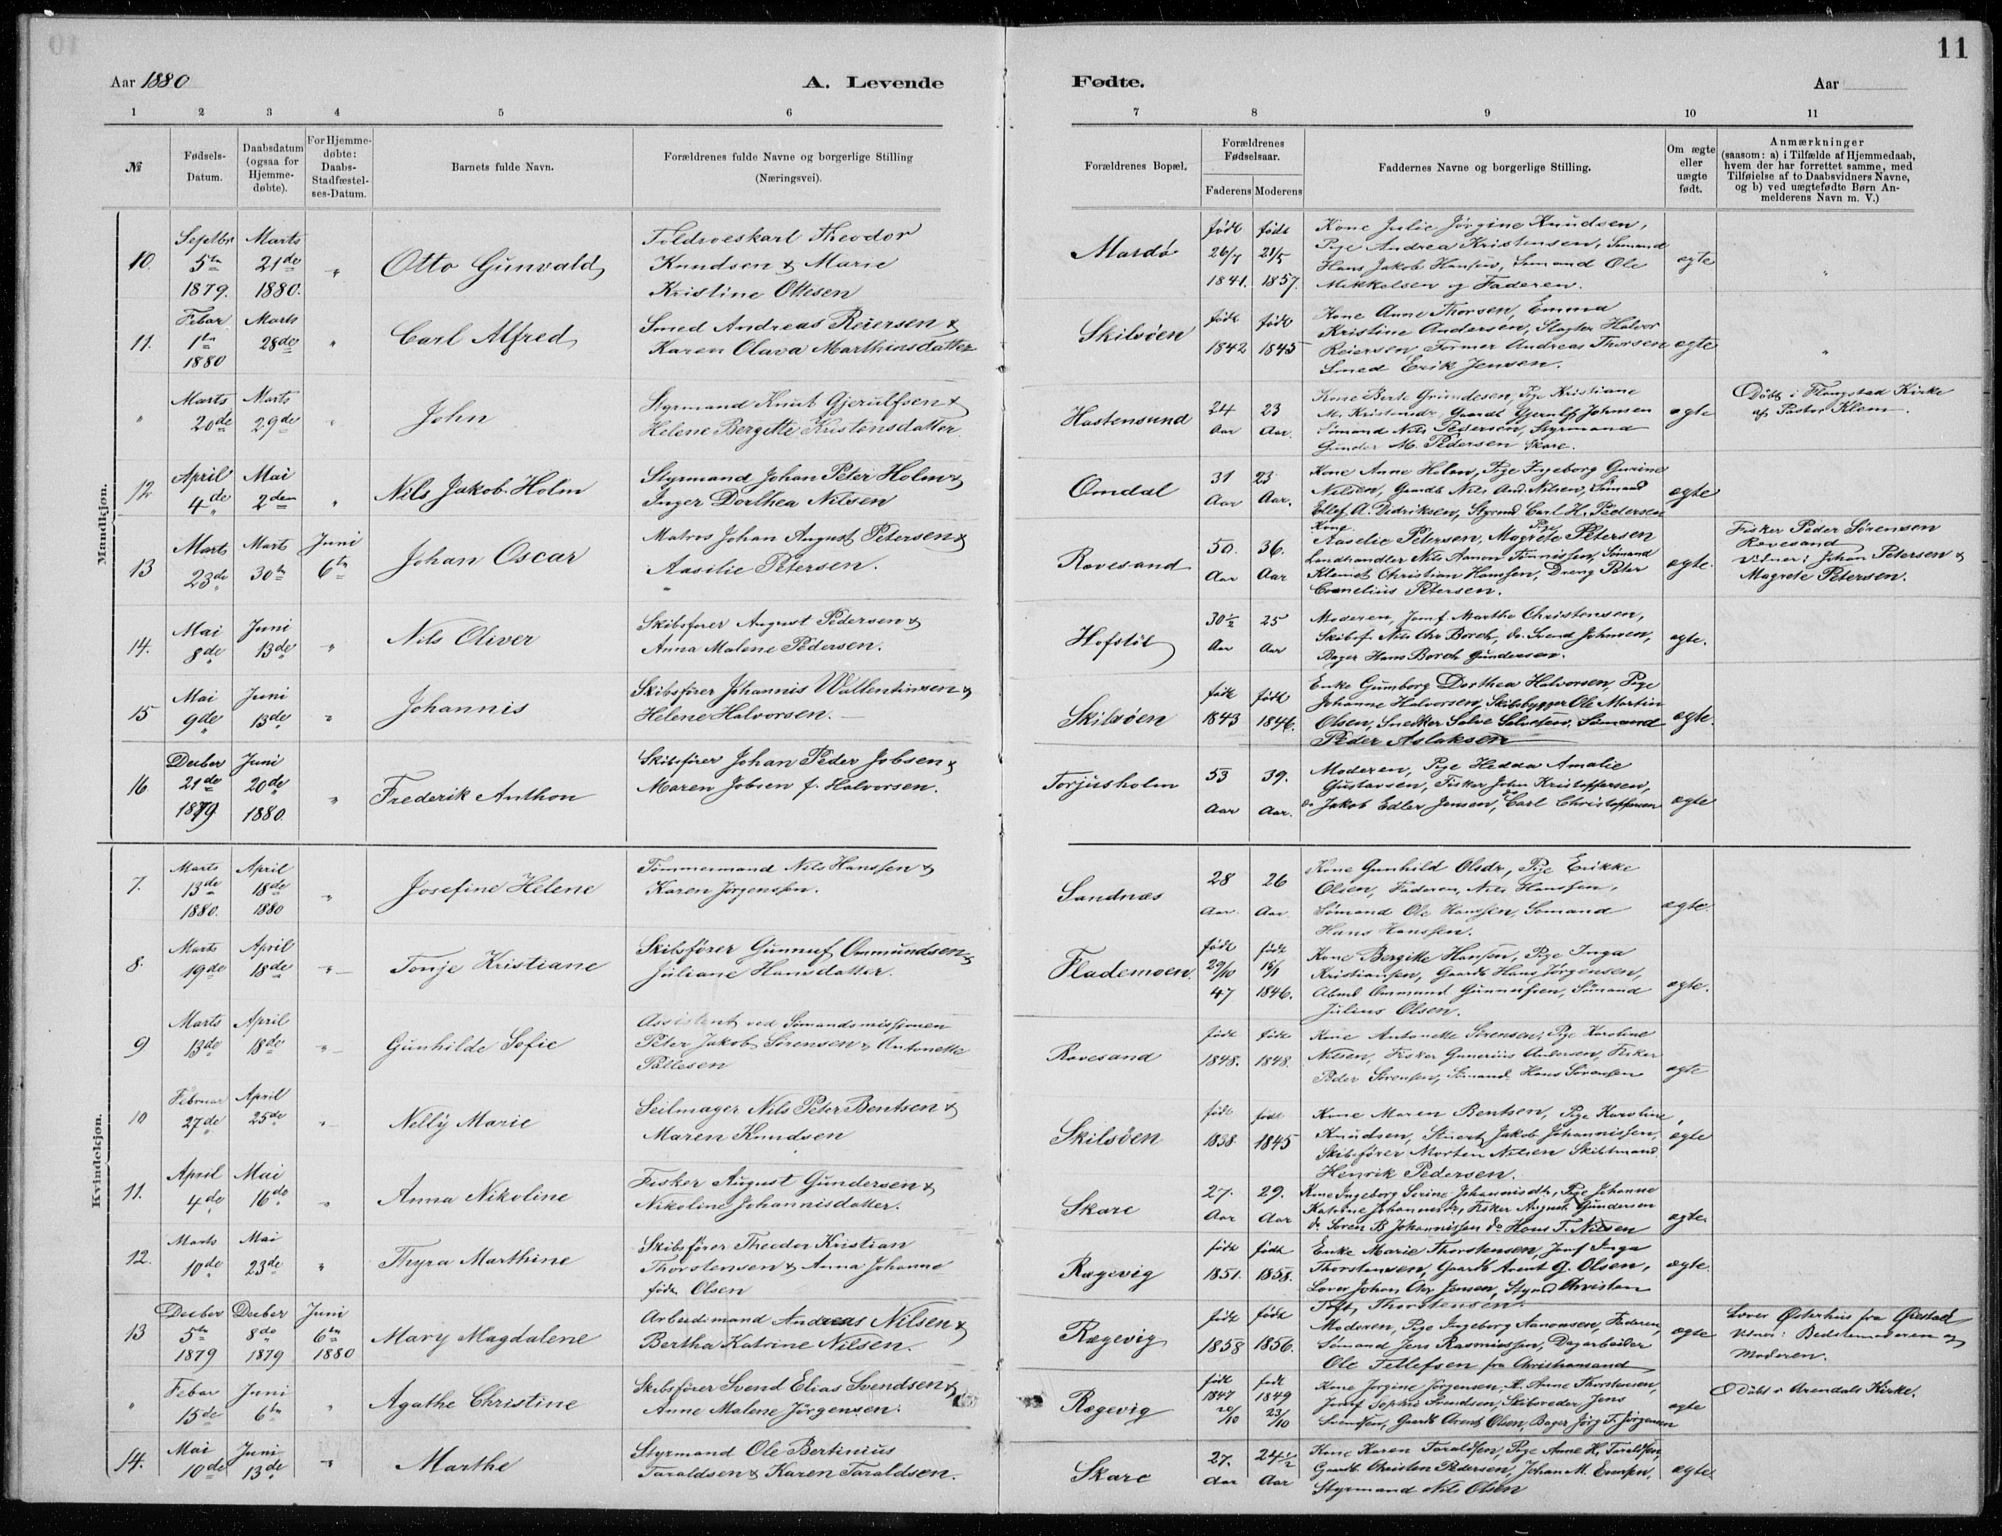 11
Aar 1880
A. Levende
Fødte.
Aar
1 2 3 4 5 6 7 8 9 10 11
№
Fødsels-
Datum.
Daabsdatum
(ogsaa for
Hjemme-
døbte).
For Hjemme-
døbte:
Daabs-
Stadfæstel-
ses-Datum.
Barnets fulde Navn.
Forældrenes fulde Navne og borgerlige Stilling
(Næringsvei).
Forældrenes Bopæl.
Forældrenes
Fødselsaar.
Faderens Moderens
Faddernes Navne og borgerlige Stilling.
Om ægte
eller
uægte
født.
Anmærkninger
(saasom: a) i Tilfælde af Hjemmedaab,
hvem der har forrettet samme, med
Tilføielse af to Daabsvidners Navne,
og b) ved uægtefødte Børn An-
melderens Navn m. V.)
Mandkjøn.
10.
Septbr
5te
1879.
Marts
21de
1880.
"
Otto Gunvald
Toldroeskarl Theodor
Knudsen & Marie
Kristine Ottesen
Mardø
født
26/7
1841.
født
21/5
1857.
Kone Julie Jørgine Knudsen,
Pige Andrea Kristensen, Sømand
Hans Jakob Hansen, Sømand Ole
Mikkelsen og Faderen.
ægte
"
11.
Febar
1te
1880
Marts
28de
"
Carl Alfred
Smed Andreas Reiersen &
Karen Olava Marthinsdatter
Skilsøen
født
1842
født
1845
Kone Anne Thorsen, Emma
Kristine Andersen, Slagter Halvor
Reiersen, Former Andreas Thorsen
Smed Erik Jensen.
ægte
"
"
Marts
20de
Marts
29de
"
John
Styrmand Knut Gjerulfsen &
Helene Bergitte Kristensdatter
Hastensund
24
Aar
23
Aar.
Kone Berte Grundesen, Pige Kristiane
M. Kristensdr, Gaardb Gjerulf Johnsen
Sømand Nils Pedersen, Styrmand
Gunder M. Pedersen Skare.
ægte
Døbt i Flangstad Kirke
af Pastor Klem.
12
April
4de
Mai
2den
"
Nils Jakob Holm
Styrmand Johan Peter Holm &
Inger Dorthea Nilsen
Omdal
31
Aar
23
Aar.
Kone Anne Holm, Pige Ingeborg Gurine
Nilsen, Gaardb Nils And. Nilsen, Sømand
Ellef A. Didriksen, Styrmd Carl H. Pedersen
ægte
13
Marts
23de
Marts
30te
Juni
6te
Johan Oscar
Matros Johan August Petersen &
Aasilie Petersen.
Revesand
50.
Aar
36.
Aar
Kone Aaselie Petersen, Pige Magrete Petersen
Landhandler Nils Aanon Tønnissen, Sømand
Klemet Christian Hanssen, Dreng Peter
Cornelius Petersen.
ægte.
Fisker Peder Sørensen
Revesand
Vidner: Johan Petersen &
Magrete Petersen.
14.
Mai
8de
Juni
13de
"
Nils Oliver
Skibsfører August Pedersen &
Anna Malene Pedersen.
Hofstøl
30½
Aar
25
Aar
Moderen, Jomf Marthe Christensen,
Skibsf. Nils Chr Borch, do. Svend Johnsen,
Bager Hans Borch Gundersen.
ægte.
15
Mai
9de
Juni
13de
"
Johannis
Skibsfører Johannis Wallentinsen &
Helene Halvorsen.
Skilsøen
født
1843
født
1846.
Enke Gumborg Dorthea Halvorsen, Pige
Johanne Halvorsen, Skibsbygger Ole Martin
Olsen, Snedker Salve Salvesen, Sømand
Peder Aslaksen
ægte.
16
Decber
21de
1879.
Juni
20de
1880.
"
Frederik Anthon
Skibsfører Johan Peder Jobsen &
Maren Jobsen f. Halvorsen.
Torjusholm
53
Aar
39.
Aar.
Moderen, Pige Hedda Amalie
Gustavsen, Fisker John Kristoffersen,
do Jakob Edler Jensen, do Carl Christoffersen
ægte
Kvindekjøn.
7.
Marts
13de
1880.
April
18de
1880
"
Josefine Helene
Tømmermand Nils Hanssen &
Karen Jørgenssen.
Sandnæs
28
Aar.
26
Aar.
Kone Gunhild Olsdr, Pige Erikke
Olsen, Faderen, Nils Hanssen,
Sømand Ole Hanssen, Sømand
Hans Hanssen.
ægte.
8.
Marts
19de
April
18de
"
Tonje Kristiane
Skibsfører Gunnuf Ommundsen &
Juliane Hansdatter.
Flademoen.
født
29/10
47
født
18/1
1846.
Kone Bergitte Hansen, Pige Inga
Kristiansen, Gaardb Hans Jørgensen,
Ommund Gunnufsen, Sømand
Julius Olsen.
ægte.
9
Marts
13de
April
18de
"
Gunhilde Sofie
Assistent ved Sømandsmissjonen
Peter Jakob Sørensen & Antonette
Pallesen
Revesand
født
1848.
født
1848.
Kone Antonette Sørensen, Pige Karoline
Nilsen, Fisker Gunerius Andersen, Fisker
Peder Sørensen, Sømand Hans Sørensen
ægte
10
Februar
27de
April
25de
"
Nelly Marie
Seilmager Nils Peter Bentsen &
Maren Knudsen
Skilsøen
født
1838
født
1845
Kone Maren Bentsen, Pige Karoline
Knudsen, Stuert Jakob Johannissen,
Skibsfører Morten Nilsen Skibtmand
Henrik Pedersen.
ægte
11.
April
4de
Mai
16de
"
Anna Nikoline
Fisker August Gundersen &
Nikoline Johannisdatter.
Skare
27.
Aar
29.
Aar
Kone Ingeborg Serine Johannisdtr, Pige Johanne
Katrine Johannisdr, Fisker August Gundersen
do. Søren B Johannissen do Hans T. Nilsen
ægte.
12.
Marts
10de
Mai
23de
"
Thyra Marthine
Skibsfører Theodor Kristian
Thorstensen & Anna Johanne
født Olsen
Rægevig
født
1851.
født
1858.
Enke Marie Thorstensen, Jomf Inga
Thorstensen, Gaardb Arent G. Olsen,
Lærer Johan Chr Jensen, Styrmd Christen
Toft Thorstensen.
ægte.
13
Decber
5te
1879
Decber
8de
1879
Juni
6te
1880
Mary Magdalene
Arbeidsmand Andreas Nilsen &
Bertha Katrine Nilsen.
Rægevig
født
1858
født
1856.
Moderen, Pige Ingeborg Aanonsen, Faderen,
Sømand Jens Rasmussen, Dagarbeider
Ole Tellefsen fra Christiansand
ægte
Lærer Østerhus fra Øiestad
Vidner: Bedstemoderen og
Moderen.
"
Febar
15de
Juni
6te
"
Agathe Christine
Skibsfører Svend Elias Svendsen &
Anne Malene Jørgensen.
Rægevig
født
1847
20/10
født
1849
23/10
Kone Jorgine Jørgensen, Anne Thorstensen,
Jomf Sophie Svendsen, Skibsreder Jens
Svendsen, Gaardb Arent Olsen, Bager Jørg T. Jørgensen
ægte
Døbt i Arendals Kirke.
14.
Mai
10de
Juni
13de
"
Marthe
Styrmand Ole Bertinius
Taraldsen & Karen Taraldsen.
Skare
27.
Aar
24½
Aar
Kone Karen Taraldsen, Pige Anne H. Taraldsen,
Gaardb Christen Pedersen, Johan M. Evensen,
Styrmand Nils Olsen
ægte